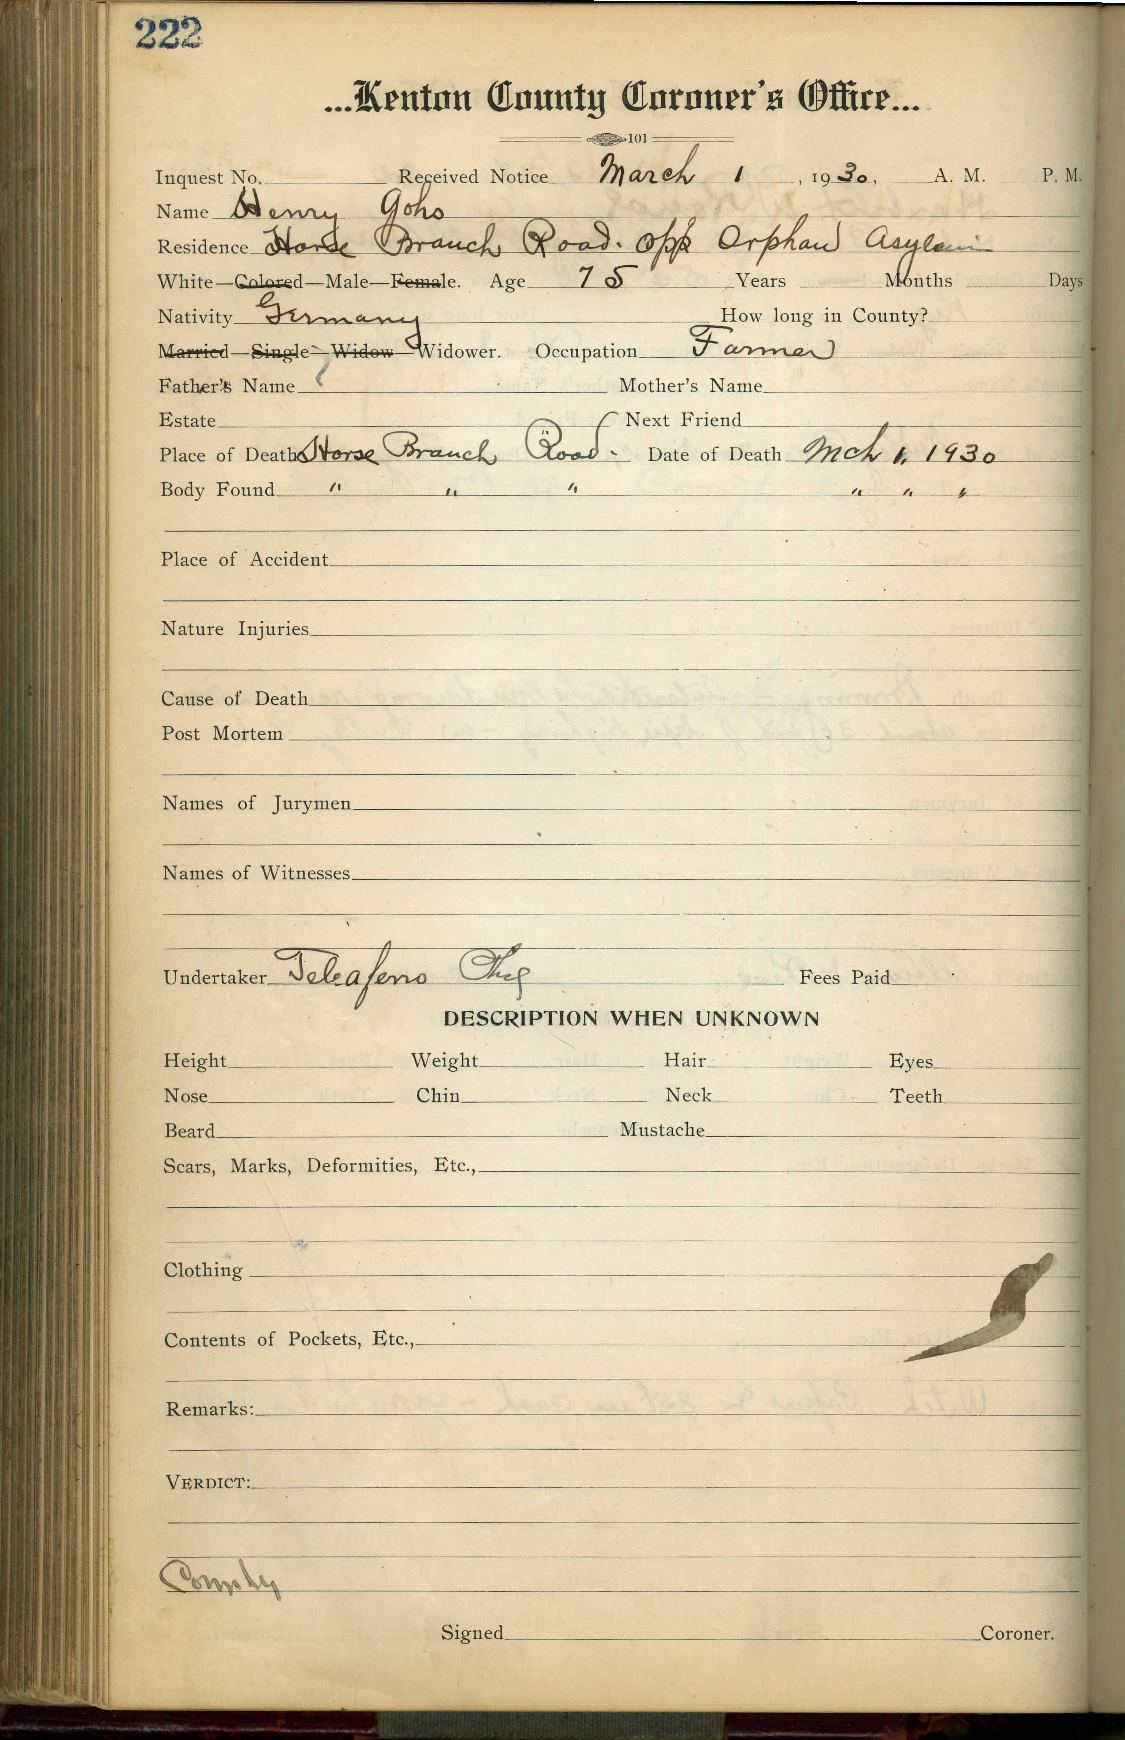 222
...Kenton County Coroner's Office...
101
Inquest No. Received Notice March 1, 1930, A. M. P. M.
Name Henry Goho
Residence Horse Branch Road. opp Orphan Asylum
White—Colored—Male—Female. Age 75 Years Months Days
Nativity Germany How long in County?
Married—Single—Widow—Widower. Occupation Farmer
Father's Name Mother's Name
Estate Next Friend
Place of Death Horse Branch Road. Date of Death Mch 1, 1930
Body Found " " " " " "
Place of Accident
Nature Injuries
Cause of Death
Post Mortem
Names of Jurymen
Names of Witnesses
Undertaker Taliaferro Fees Paid
DESCRIPTION WHEN UNKNOWN
Height Weight Hair Eyes
Nose Chin Neck Teeth
Beard Mustache
Scars, Marks, Deformities, Etc.,
Clothing
Contents of Pockets, Etc.,
Remarks:
VERDICT:
County
Signed Coroner.